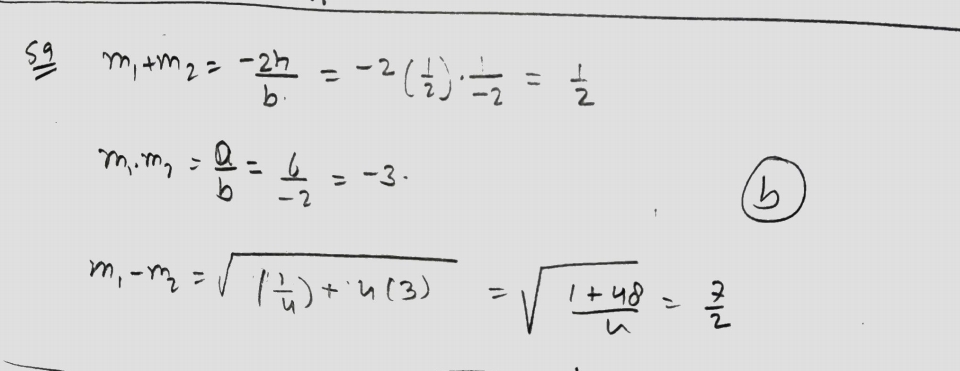 59 m₁+m₂ = -2h/b. = -2(1/2)·1/-2 = 1/2
m₁.m₂ = a/b = 6/-2 = -3.
b
m₁-m₂ = √((1/4)+4(3)) = √((1+48)/4) = 7/2